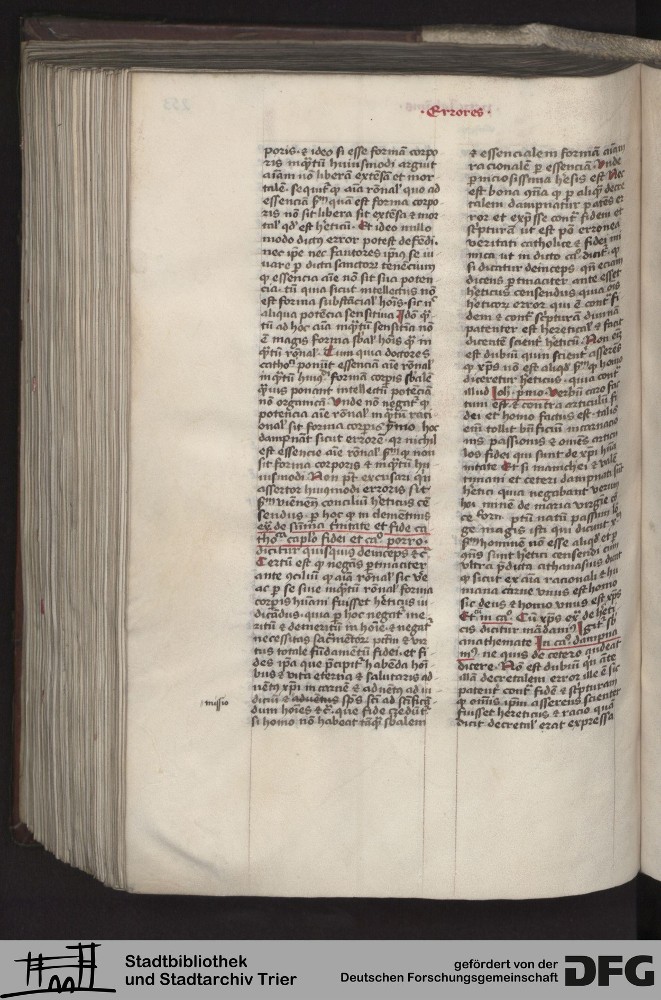 ·Errores·
poris · & ideo si esse formā corpo
ris inq̄tū huiusmodi arguit
aīam nō liberā extēsā et mor
talē · sequit᷑ ꝙ aīa rōnal' quo ad
essenciā
ris nō sit libera sit extēsa & mor
tal' qd' est heticū · Et ideo nullo
modo dictꝰ error potest defēdi ·
nec ipe nec fautores ip̄ius se iu
uare ꝑ dicta sanctoꝝ tenēcium
ꝙ essencia aīe nō sit sua poten
cia · tū quia sicut intellectus nō
est forma substācial' hoīs · sic nᶜ
aliqua potēcia sensitiua
tū ad hoc aīa inq̄tū sensitīa nō
ē magis forma sbāl' hoīs q̄ in
q̄tū rōnal' · Tum quia doctores
catho ponūt essenciā aīe rōnal'
inq̄tū huiꝰ formā corpis sbālē
q̄uis ponant intellectū potēciā
nō organicā · Vnde nō negat᷑ ꝙ
potēcia aīe rōnal' inq̄tū raci
onal' sit forma corpis
dampnāt sicut errorē · ꝙ nichil
est essencie aīe rōnal'
sit forma corporis & inq̄tū hu
iusmodi · Non pt̄ excusari
assertor huiusmodi erroris sit
viēnen̄ conciliū heticus cē
sendus · ꝑ hoc ꝙ in clemētinis
de sūma t̄nitate et fide ca
tho caplo fidei et caº porro ·
dicitur quisquis deinceps &c
Certū est ꝙ negās ꝑtinaciter
ante ꝯciliū ꝙ aīa rōnal' sic ve
ac ꝑ se sine inq̄tū rōnal' forma
corpis hūani fuisset heticus iu
dicādus · quia ꝑ hoc negat me
ritū & demeritū in hoīe & negat᷑
necessitas sacmētoꝝ
tus totale fūdamētū fidei · et fi
des ip̄a que p̄cipit᷑ habēda hoī
bus & vita eterna & salutaris ad
uētꝰ xp̄i in carnē & aduētꝰ ad iu
diciū & aduētus sp̄s sc̄i ad sc̄ificā
dum hoīes &c · que fide credūt᷑
si homo nō habeat tāq̄ sbālem
missio
& essencialem formā aīam
racionalē ꝑ essenciā · Vnde
ꝑniciosissima hesis est · Nec
est bona
talem dampnatur
ror et exp̄sse cont̄ fidem et
sc̄pturā ut est pō erronea
veritati catholice & fidei ini
mica ut in dicto caº
si dicatur deinceps
dicens ꝑtinaciter ante esset
heticus censendus · quia oīs
heticoꝝ error qui ē cont̄ fi
dem & cont̄ sc̄pturā diuinā
patenter est heretical' & facit
dicentē scient̄ heticū · Non
est dubiū quin scient̄ asserēs
ꝙ xp̄s nō est aliqd'
diceretur heticus · quia cont̄
illud Joh · p̄mo · Verbū caro fac
tum est · & contra articulū fi
dei et homo factus est · talis
eīm tollit bn̄ficiū incarnacio
nis passionis & oīnes articu
los fidei qui sunt de xp̄i hūa
nitate · Et si manichei & vale
tiniani et ceteri dampnati sūt
hetici quia negabant verum
hoīnē de maria virgīe
ptū natū passum
ge magis isti qui dicunt
hominē nō esse aliqd' et ꝑ
sunt hetici censendi cum
vltra p̄dicta athanasius dicat
ꝙ sicut ex aīa racionali & hu
mana carne vnus est homo
sic deus & homo vnus est xp̄s
Et in caº · Cū xp̄s
cis dicitur mādamꝰ igit᷑ sb
anathemate · In caº dampna
mꝰ ne quis de cetero audeat
dicere · Nō est dubiū
illā decretalem error ille ē
patent cont̄ fidē & sc̄pturam
ꝙ omīs ip̄m asserens scienter
fuisset hereticus & racio quā
dicit decretal' erat expressa
Stadtbibliothek
und Stadtarchiv Trier
gefördert von der
Deutschen Forschungsgemeinschaft
DFG